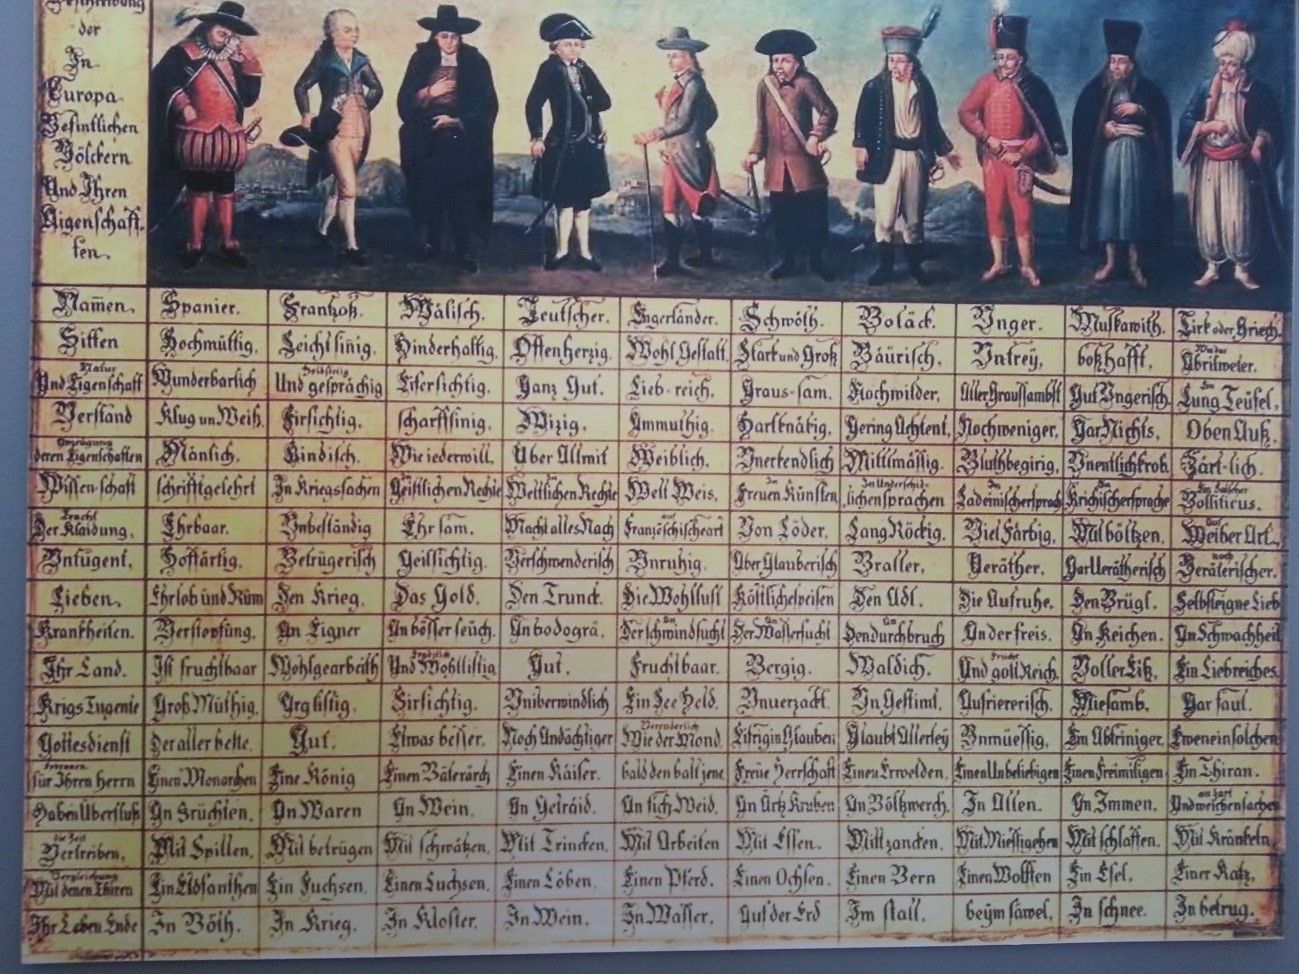 Beschreibung
der
In
Europa
Befintlichen
Völckern
Und Ihren
Aigenschaff-
ten.
Namen. Spanier. Frantzoß. Wälisch. Teutscher. Engerländer. Schwöth. Boläck. Unger. Muskawith. Tirk oder Griech.
Sitten Hochmüttig. Leicht sinig. Hinderhaltig. Offenherzig. Wohl Gestalt. Stark und Groß Bäurisch. Untrey. boßhafft. Wie das Abrilweter.
Natur Und Eigenschaft Wunderbarlich Holdseelig Und gesprächig Eifersichtig. Ganz Gut. Lieb-reich. Graus-sam. Nochwilder. Aller Graussambst Gut Ungerisch. Ein Lung Teüfel.
Verstand Klug un Weiß. Firsichtig. scharffsinig. Wizig. Ammuthig. Hartknätig. Gering Achtent. Nochweniger. Gar Nichts. Oben Auß.
Anzeigung deren Eigenschaften Mänlich. Kindisch. Wie iederwill. Über Allmit Weiblich. Unerkendlich Mittlmässig. Bluthbegirig. Unentlichkrob. Zärt-lich.
Wissenschaft schrifftgelehrt In Kriegssachen Geistlichen Rechte Weltlichen Rechte Welt Weis. In Freuen Künsten In Underschid-lichen sprachen In Ladeinischersprach In Krichischersprache Ein falscher Bolliticus.
Tracht Der Klaidung. Ehrbaar. Unbeständig Ehr sam. Macht alles Nach Französischeart Von Löder. Lang Röckig. Viel Färbig. Mit böltzen. Auf Weiber Art.
Untugent. Hoffärtig. Betrügerisch Geilsichtig. Verschwenderisch Unruhig. Über Glauberisch Braller. Veräther. Gar Verätherisch noch Verätterischer.
Lieben. Ehrlob und Rüm Den Krieg. Das Gold. Den Trunck. Die Wohllust Köstlichespeisen Den Adl. Die Aufruhe. Den Brügl. Selbsteigne Lieb
Krankheiten. Verstopfung. An Eigner An bösser seüch. An bodogrä. An Der schwindsucht An Der Wassersucht An Den durchbruch An der freis. An Keichen. An Schwachheit
Ihr Land. Ist fruchtbaar Wohlgearbeith Ergözlich Und Wohllistig Gut. Fruchtbaar. Bergig. Waldich. Frucht Und golt Reich. Voller Eiß. Ein Liebreiches
Krigs Tugente Groß Müthig. Arglistig. Firsichtig. Uniberwindlich Ein See Held. Unuerzackt. Un Gestimt. Aufriererisch. Miesamb. Gar faul.
Gottesdienst Der aller beste. Gut. Etwas besser. Noch Andächtiger Verenderlich Wie der Mond Eifrig in Glauben Glaubt Allerley Unmüessig. Ein Abtriniger. Eweneinsolchen
Erkennen für Ihren herrn Einen Monarchen Eine König Einen Bäterärch Einen Käiser. bald den balt jene Freüe Herrschaft Einen Erwelden. Einen Unbeliebigen Einen Freimiligen Ein Thiran.
Haben Überfluß An Früchten. An Waren An Wein. An Geträid. An fich Weid. An Ärtz Kruben An Böltzwerch. In Allen. An Immen. an zart Und weichen sachen
die Zeit Vertreiben. Mit Spillen. Mit betrügen Mit schwätzen. Mit Trincken. Mit Arbeiten Mit Essen. Mitt zancken. Mit Miessigehen Mit schlaffen. Mit Kränkeln.
Vergleichung Mit denen Thiren Ein Elofanthen Ein Fuchsen. Einen Luchsen. Einen Löben. Einen Pferd. Einen Ochsen. Einen Bern Einen Wolffen Ein Esel. Einer Katz.
Ihr Leben Ende In Böth. In Krieg. In Kloster. In Wein. In Wasser. Auf der Erd Im stall. beym säwel. In schnee. In betrug.